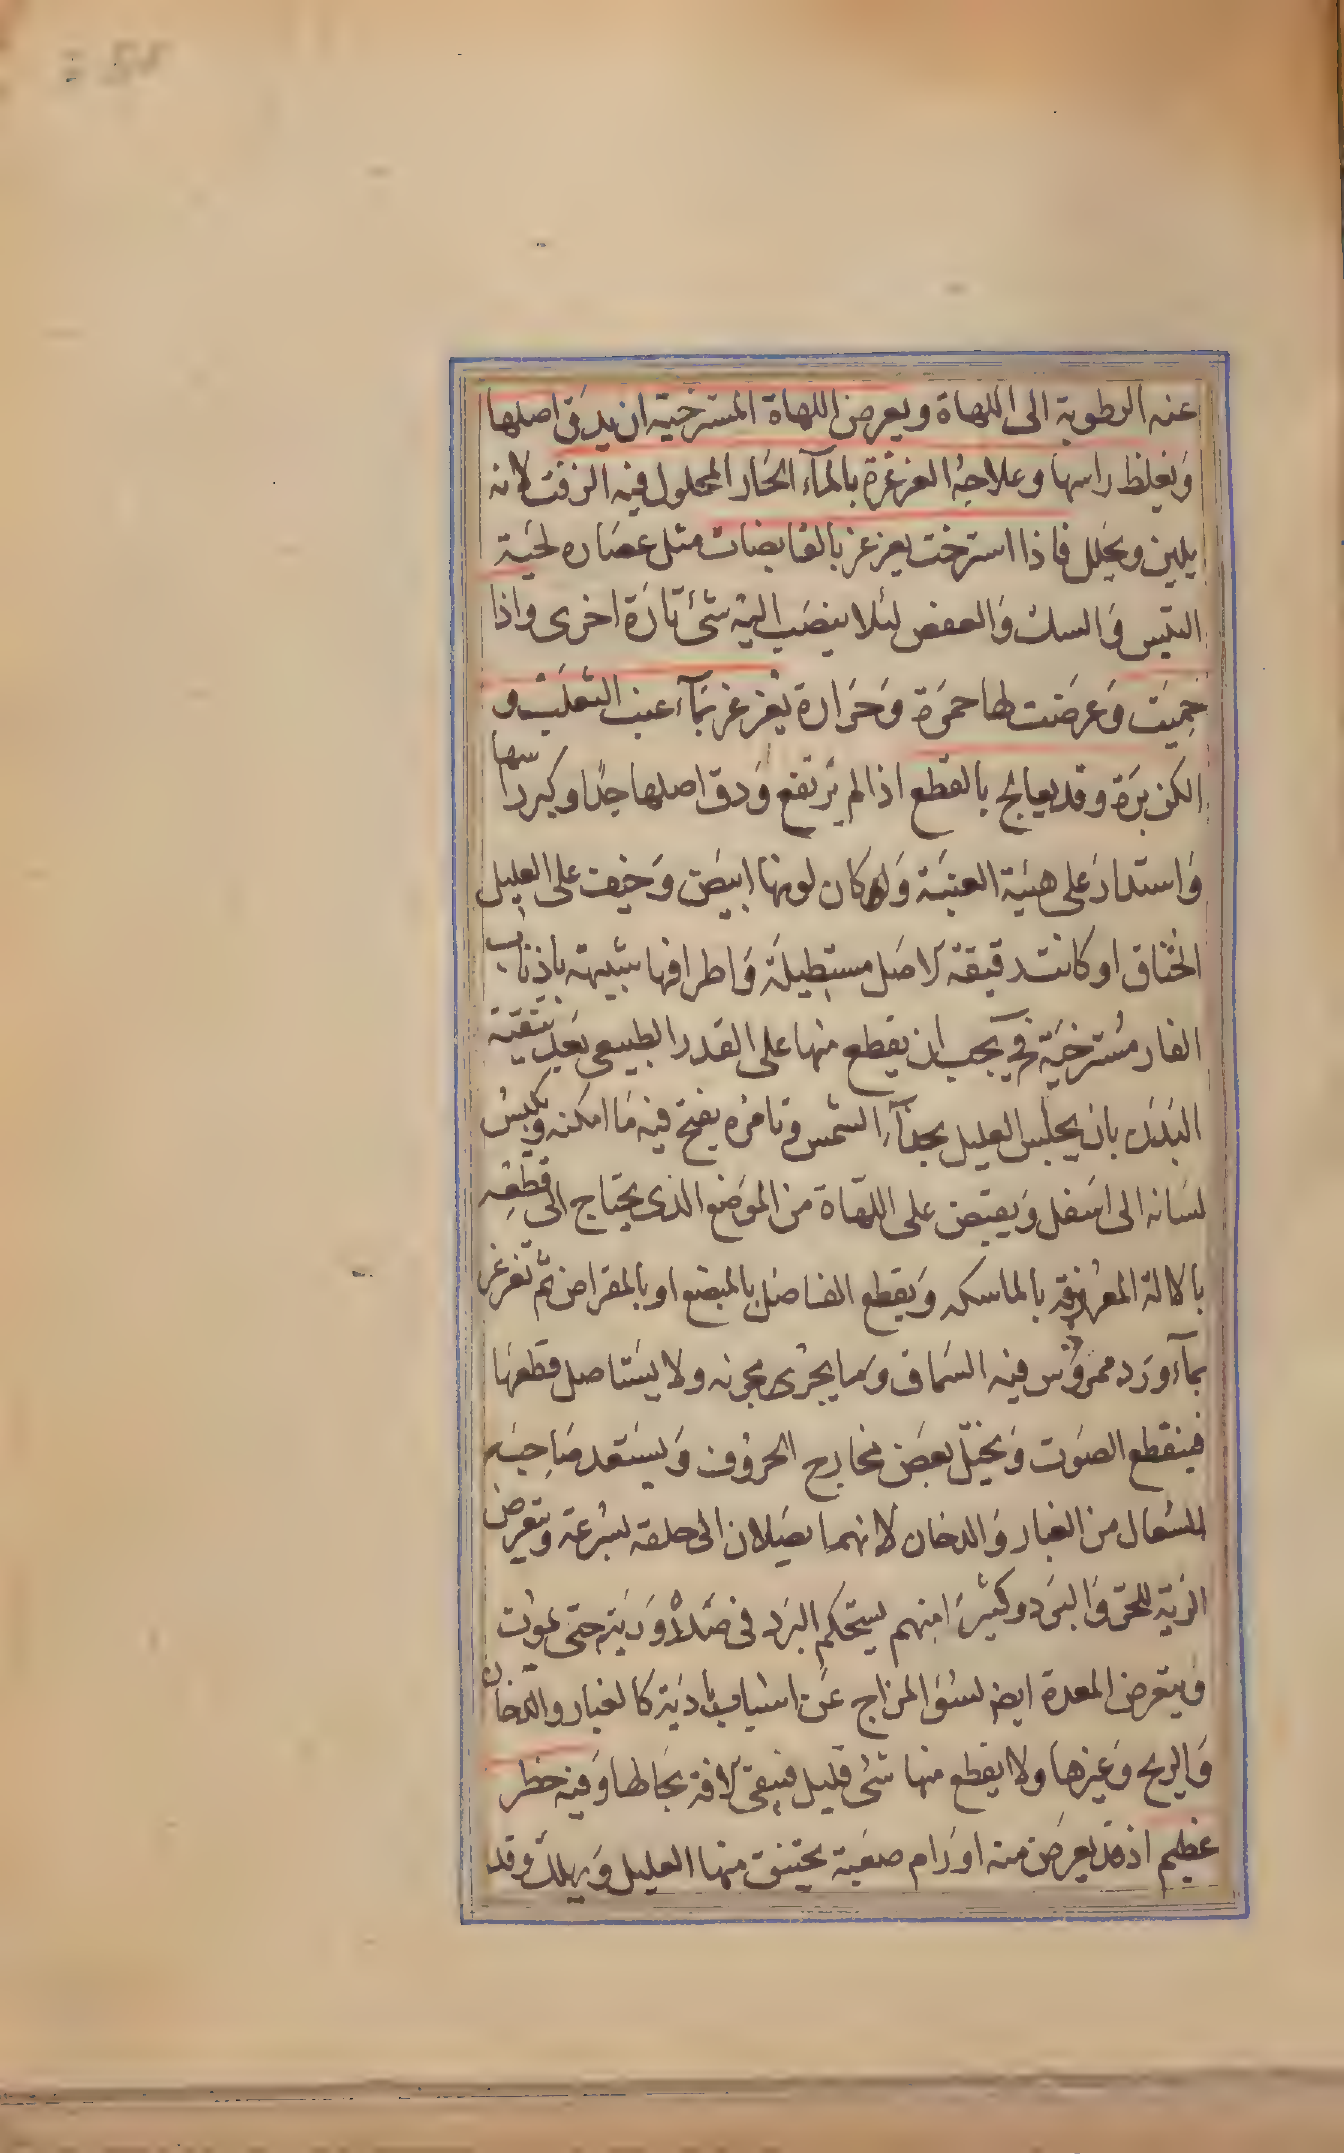 عنه الرطوبة الى اللهاة ويعرض اللهاة المسترخية ان يدق اصلها
وَيغلظ راسها وعلاجهُ الغرغرة بالمآء الحَار المحلول فيه الزفت لانه
يلين ويحَلل فاذا استرخت يغرغر بالقابضات مثل عصَاره لحيَة
التيس وَالسك وَالعفص لئلا ينصَب اليه شئ تارَة اخرى واذا
حِميَت وَعرَضت لها حمرَة وَحَرارة يُغرغر بمَآء عنب الثعلب و
الكزبرَة وقد يعالج بالقطع اذا لم يرَتفع وَدق اصلها جدًا وكبر راسها
وَاستدارَ على هيئة العنبَة وَ كان لونها ابيَض وَخيف على العليل
الخُناق او كانت دقيقة الاصَل مستطيلَة وَاطرافها شبيهة باذناب
الفار مُسترخيَة فح يجب ان يقطع منها على القدر الطبيعى بعَد تنقية
البَدَن بان يجلس العليل بحذآء الشمس وتامُره يفتح فيه مَا امكنه ويكبسُ
لسَانه الى اسَفل وَيقبض على اللهَاة من الموَضع الذى يحتاج الى قطعِه
بالالة المعرُوفة بالماسكه وَيقطع الفاضل بالمبضع او بالمقراض ثم تغرغر
بمآء وَرد ممرُوس فيه السَماق وَما يجرى مجرَاه ولا يسَتاصل قطعهَا
فينقطع الصوَت وَيختل بعضَ مخارج الحرُوف وَيسَتعد صَاحبَه
للسُعال من الغبار وَالدخان لانهما يصَلان الى حلقه بسُرعة ويتعرض
الريَة للحرّ وَالبرَد وكثيرًا منهم يستحكم البَرد فى صَدره وَريَته حتى يموُت
وَيتعرض المعدة ايضا لسُؤ المزاج عَن اسَباب بادية كالغبار والدخان
وَالريح وَغيرها ولا يقطع منها شئ قليل فتبقى الافة بحَالها وَفيه خطر
عظيم اذ قد يعرضَ منه اورَام صعَبة يختنق منها العليل وَيهلك وقد